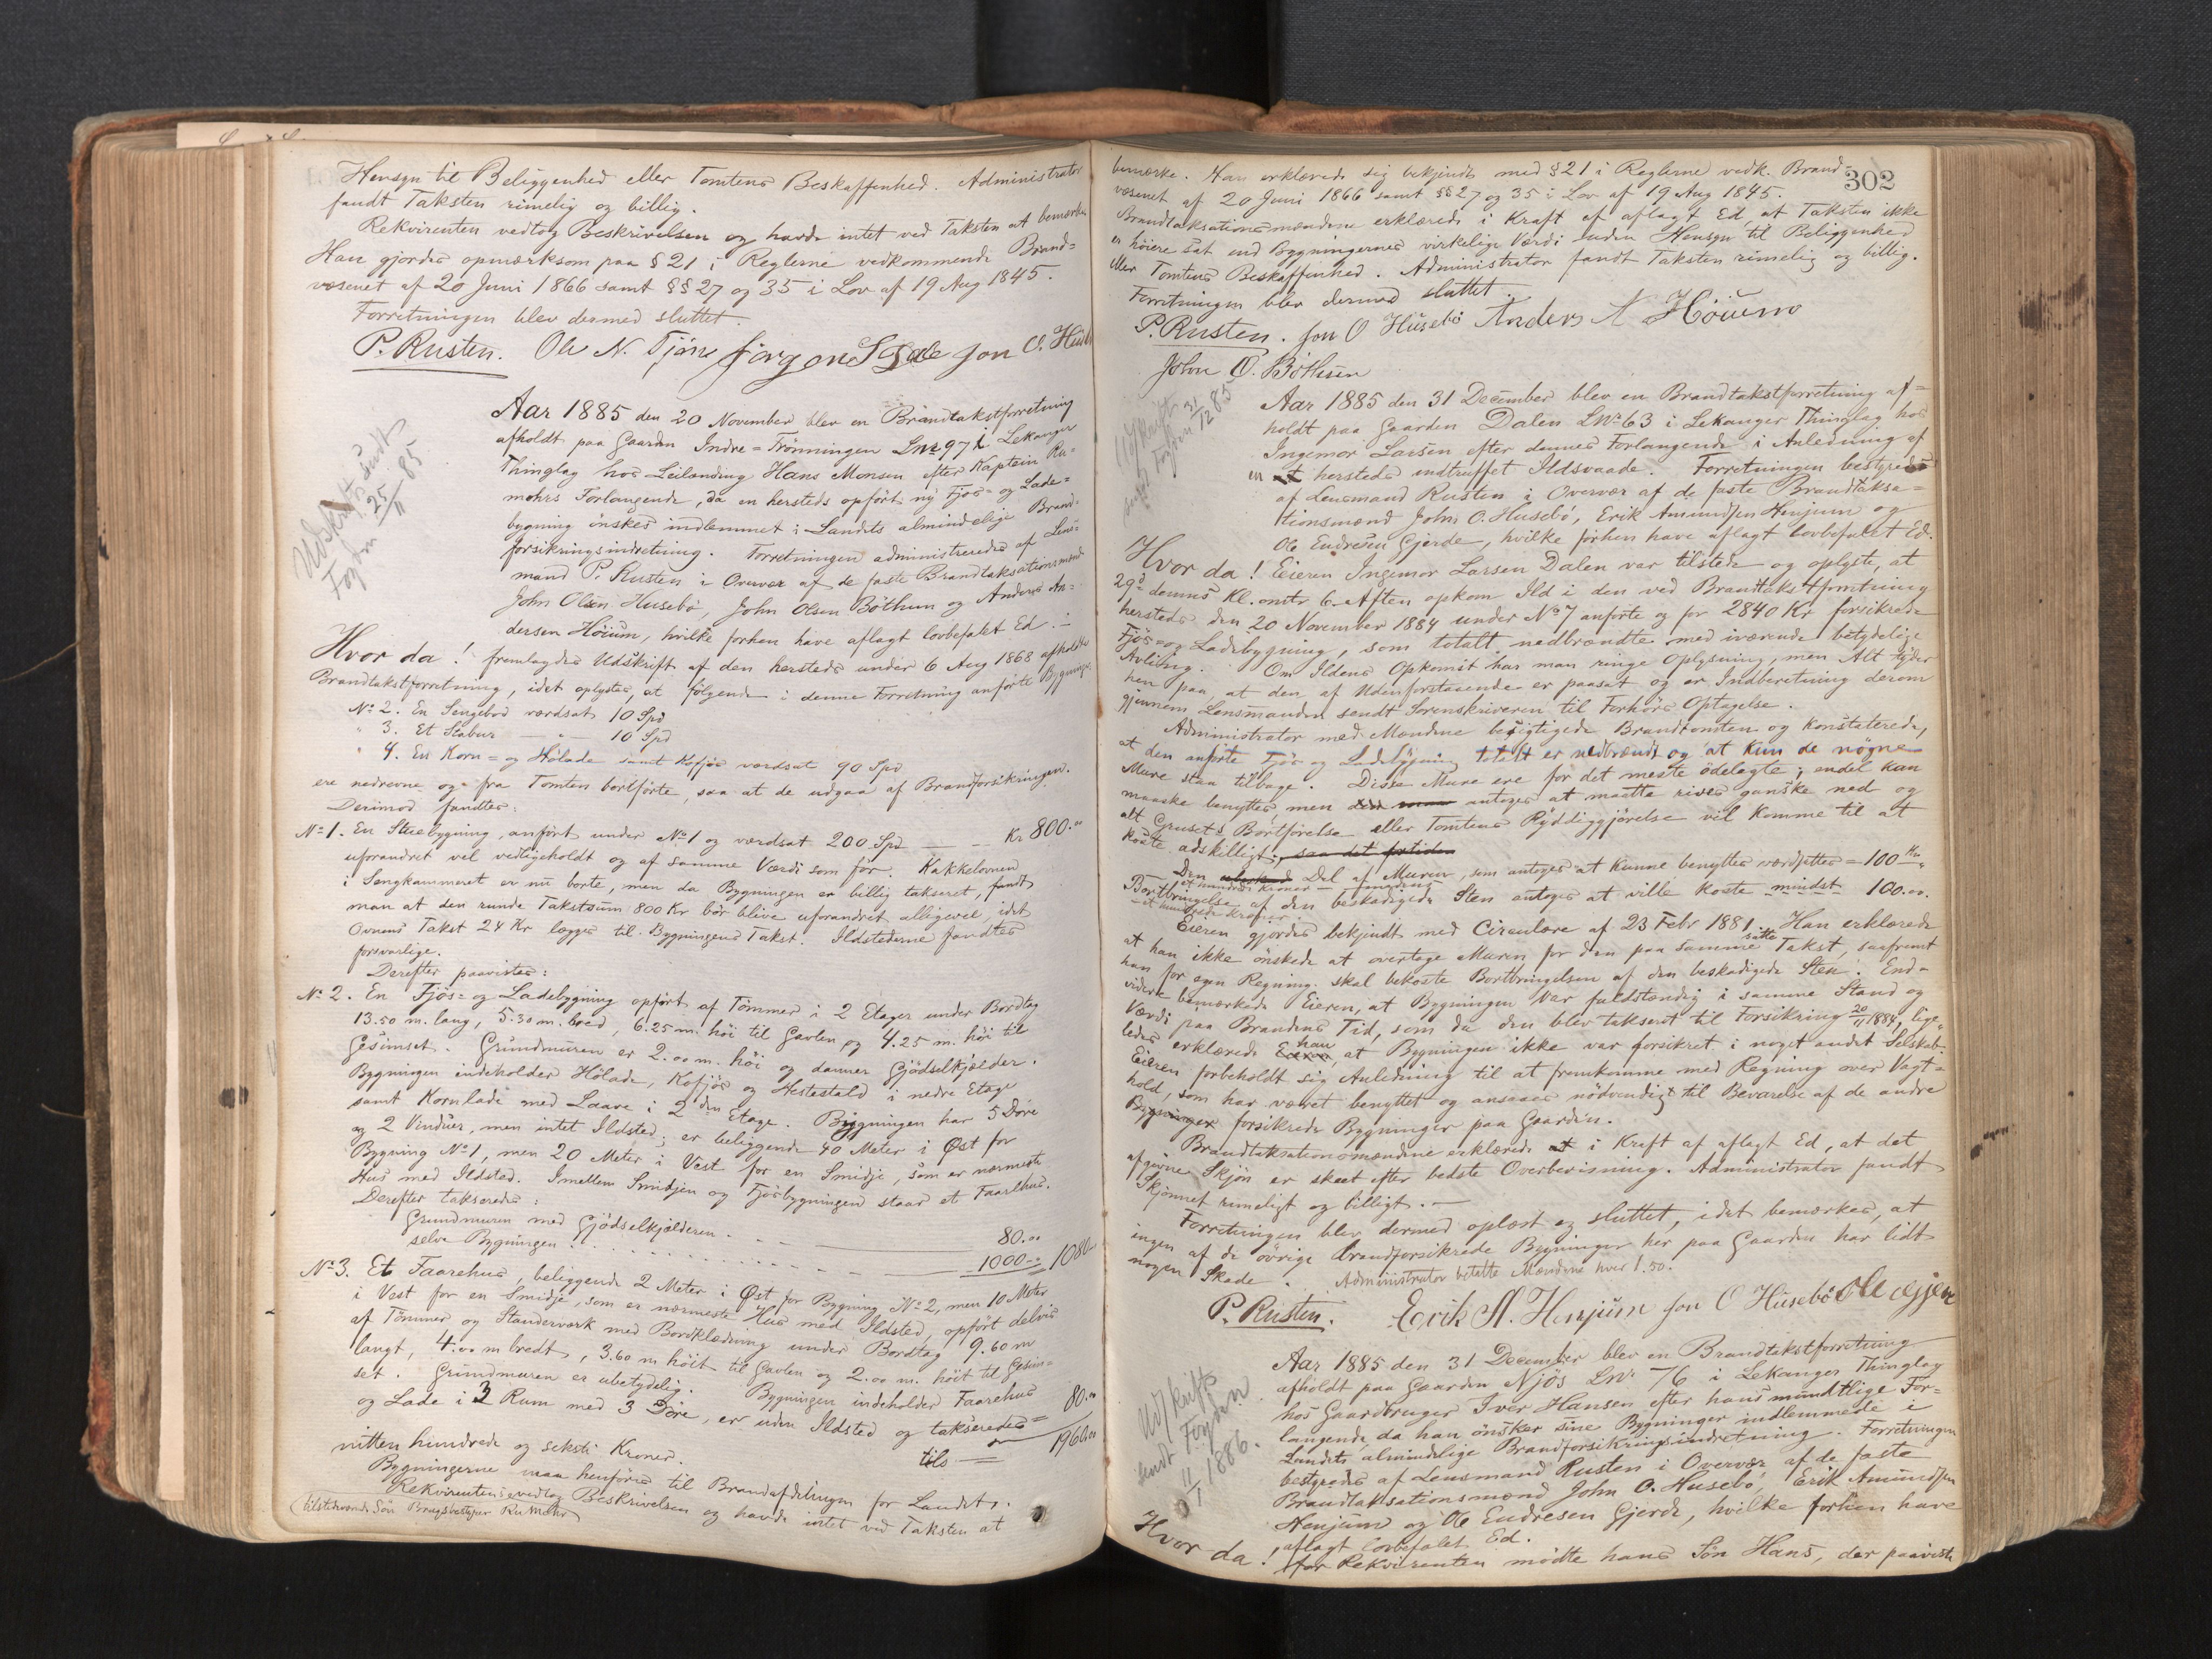 Hensyn til Beliggenhed eller Tomtens Beskaffenhed. Administrator
fandt Taksten rimelig og billig.
Rekvirenten vedtog Beskrivelsen og havde intet ved Taksten at bemærke
Han gjordes opmærksom paa § 21 i Reglerne vedkommende Brand=
væsenet af 20 Juni 1866 samt §§ 27 og 35 i Lov af 19 Aug 1845.
Forretningen blev dermed sluttet.
P. Rusten. Ole N. Tjøne Jørgen S jon O. Huseb
Udskrift sendt
Fogden 25/11 85
Aar 1885 den 20 November blev en Brandtakstforretning
afholdt paa Gaarden Indre=Frønningen Lnr 97 i Lekanger
Thinglag hos Leilænding Hans Monsen efter Kaptein Ru=
mohrs Forlangende, da en hersteds opført ny Fjøs= og Lade=
bygning ønskes indlemmet i Landets almindelige Brand=
forsikringsindretning. Forretningen administreredes af Lens=
mand P. Rusten i Overvær af de faste Brandtaksationsmænd
John Olsen Husebø, John Olsen Bøthun og Anders An=
dersen Høium, hvilke forhen have aflagt lovbefalet Ed. –
Hvor da! fremlagdes Udskrift af den hersteds under 6 Aug 1868 afholdte
Brandtakstforretning, idet oplystes, at følgende i denne Forretning anførte Bygninger:
No 2. En Sengebod værdsat 10 Spd
" 3. Et Stabur — " — 10 Spd
" 4. En Korn= og Hølade samt Kofjøs værdsat 90 Spd
ere nedrevne og fra Tomten bortførte, saa at de udgaa af Brandforsikringen.
Derimod fandtes:
No 1. En Stuebygning, anført under No 1 og værdsat 200 Spd — — Kr 800.00
uforandret vel vedligeholdt og af samme Værdi som før. Kakkelovnen
i Sengkammeret er nu borte, men da Bygningen er billig takseret, fandt
man at den runde Takstsum 800 Kr bør blive uforandret alligevel, idet
Ovnens Takst 24 Kr lægges til Bygningens Takst. Ildstederne fandtes
forsvarlige.
Derefter paavistes:
No 2. En Fjøs= og Ladebygning opført af Tømmer i 2 Etager under Bordtag
13.50 m. lang, 5.30 m. bred, 6.25 m. høi til Gavlen og 4.25 m. høi til
Gesimset. Grundmuren er 2.00 m. høi og danner Gjødselkjælder.
Bygningen indeholder Hølade, Kofjøs og Hestestald i nedre Etage
samt Kornlade med Laave i 2den Etage. Bygningen har 5 Døre
og 2 Vinduer, men intet Ildsted; er beliggende 40 Meter i Øst for
Bygning No 1, men 20 Meter i Vest for en Smidje, som er nærmeste
Hus med Ildsted. Imellem Smidjen og Fjøsbygningen staar et Faarehus.
Derefter takseredes:
Grundmuren med Gjødselkjælderen . . . 80.00
selve Bygningen . . . . . . . 1000.00 1080.00
No 3. Et Faarehus, beliggende 2 Meter i Øst for Bygning No 2, men 10 Meter
i Vest for en Smidje, som er nærmeste Hus med Ildsted, opført delvis
af Tømmer og Standerværk med Bordklædning under Bordtag 9.60 m
langt, 4.00 m bredt, 3.60 m høit til Gavlen og 2.00 m. høit til Gesim=
set. Grundmuren er ubetydelig. Bygningen indeholder Faarehus
og Lade i 3 Rum med 3 Døre, er uden Ildsted og takseredes = 80.00
tils — 1960.00
nitten hundrede og seksti Kroner.
Bygningerne maa henføres til Brandafdelingen for Landet.
Rekvirentens vedtog Beskrivelsen og havde intet ved Taksten at
(tilstedeværende Søn Brugsbestyrer Rumohr)
302
bemærke. Han erklærede sig bekjendt med § 21 i Reglerne vedk. Brand=
væsenet af 20 Juni 1866 samt §§ 27 og 35 i Lov af 19 Aug 1845.
Brandtaksationsmændene erklærede i Kraft af aflagt Ed, at Taksten ikke
er høiere sat end Bygningernes virkelige Værdi uden Hensyn til Beliggenhed
eller Tomtens Beskaffenhed. Administrator fandt Taksten rimelig og billig.
Forretningen blev dermed sluttet.
P. Rusten. jon O Husebø Anders A Høium
John O. Bøthun
Udskrift
sendt Fogden 31/12 85
Aar 1885 den 31 December blev en Brandtakstforretning af=
holdt paa Gaarden Dalen LNo 63 i Lekanger Thinglag hos
Ingemor Larsen efter dennes Forlangende i Anledning af
en hersteds indtruffet Ildsvaade. Forretningen bestyredes
af Lensmand Rusten i Overvær af de faste Brandtaksa=
tionsmænd John O. Husebø, Erik Amundsen Henjum og
Ole Endresen Gjerde, hvilke forhen have aflagt lovbefalet Ed.
Hvor da! Eieren Ingemor Larsen Dalen var tilstede og oplyste, at
29d dennes Kl. omtr 6 Aften opkom Ild i den ved Brandtakstforretning
hersteds den 20 November 1884 under No 7 anførte og for 2840 Kr forsikrede
Fjøs og Ladebygning, som totalt nedbrændte med iværende betydelige
Avling. Om Ildens Opkomst har man ringe Oplysning, men Alt tyder
hen paa, at den af Udenforstaaende er paasat og er Indberetning derom
gjennem Lensmanden sendt Sorenskriveren til Forhørs Optagelse.
Administrator med Mændene besigtigede Brandtomten og konstaterede,
at den anførte Fjøs og Ladebygning totalt er nedbrændt og at kun de nøgne
Mure staa tilbage. Disse Mure ere for det meste ødelagte; endel kan
maaske benyttes, men antoges at maatte rives ganske ned og
alt Grusets Bortførelse eller Tomtens Ryddiggjørelse vil komme til at
koste adskilligt, saa det fortiden
Den Del af Muren, som antoges at kunne benyttes værdsættes = 100 Kr
et hundrede Kroner —
Bortbringelse af den beskadigede Sten antoges at ville koste mindst 100.00.
– et hundrede Kroner.
Eieren gjordes bekjendt med Circulære af 23 Febr 1881. Han erklærede
at han ikke ønskede at overtage Muren for den paa samme satte Takst, saafremt
han for egen Regning skal bekoste Bortbringelsen af den beskadigede Sten. End=
videre bemærkede Eieren, at Bygningen var fuldstændig i samme Stand og
Værdi paa Brandens Tid, som da den blev takseret til Forsikring 20/11 1884, lige=
ledes erklærede han, at Bygningen ikke var forsikret i noget andet Selskab.
Eieren forbeholdt sig Anledning til at fremkomme med Regning over Vagt=
hold, som har været benyttet og ansees nødvendigt til Bevarelse af de andre
Bygninger forsikrede Bygninger paa Gaarden.
Brandtaksationsmændene erklærede at i Kraft af aflagt Ed, at det
afgivne Skjøn er skeet efter bedste Overbevisning. Administrator fandt
Skjønnet rimeligt og billigt. —
Forretningen blev dermed oplæst og sluttet, idet bemærkes, at
ingen af de øvrige brandforsikrede Bygninger her paa Gaarden har lidt
nogen Skade. Administrator betalte Mændene hver 1.50.
P. Rusten. Erik A. Henjum jon O Husebø Ole egjerde
Udskrift
sendt Fogden
11/1 1886.
Aar 1885 den 31 December blev en Brandtakstforretning
afholdt paa Gaarden Njøs LNr 76 i Lekanger Thinglag
hos Gaardbruger Iver Hansen efter hans mundtlige For=
langende, da han ønsker sine Bygninger indlemmede i
Landets almindelige Brandforsikringsindretning. Forretningen
bestyredes af Lensmand Rusten i Overvær af de faste
Brandtaksationsmænd John O. Husebø, Erik Amundsen
Henjum og Ole Endresen Gjerde, hvilke forhen have
aflagt lovbefalet Ed.
Hvor da! for Rekvirenten mødte hans Søn Hans, der paaviste